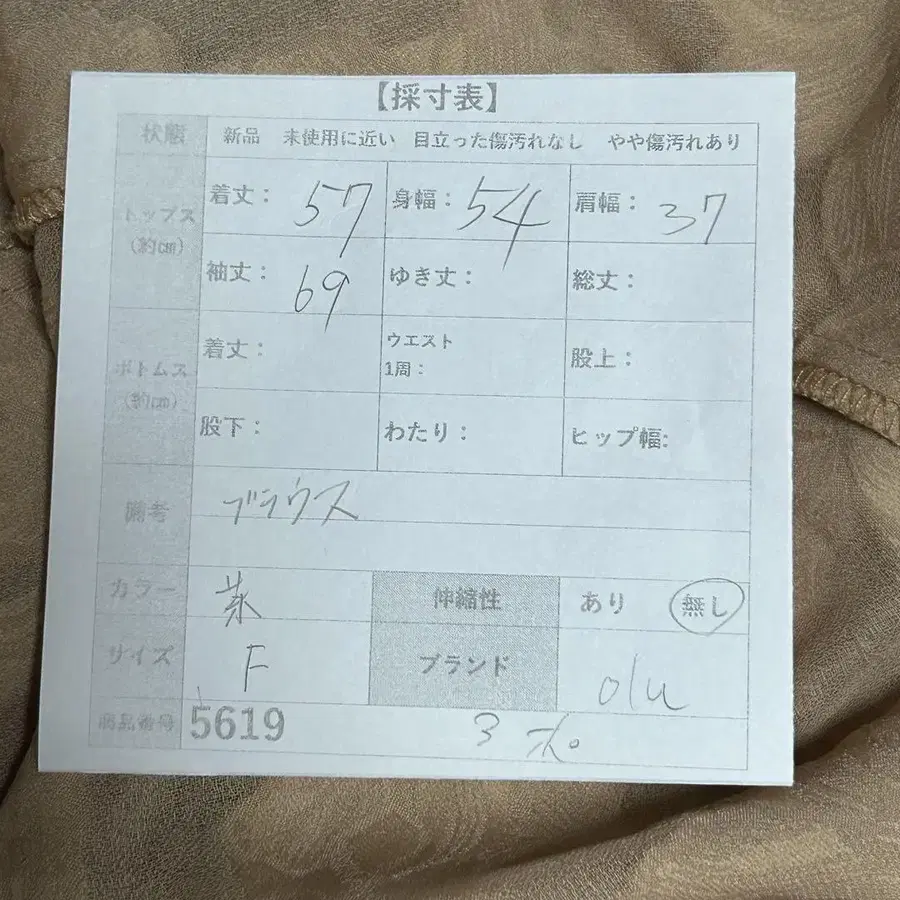 【採寸表】
状態 新品 未使用に近い 目立った傷汚れなし やや傷汚れあり
トップス (約㎝) 着丈: 57 身幅: 54 肩幅: 37
袖丈: 69 ゆき丈: 総丈:
ボトムス (約㎝) 着丈: ウエスト 1周: 股上:
股下: わたり: ヒップ幅:
備考 ブラウス
カラー 茶 伸縮性 あり 無し
サイズ F ブランド olu
商品番号 5619 3